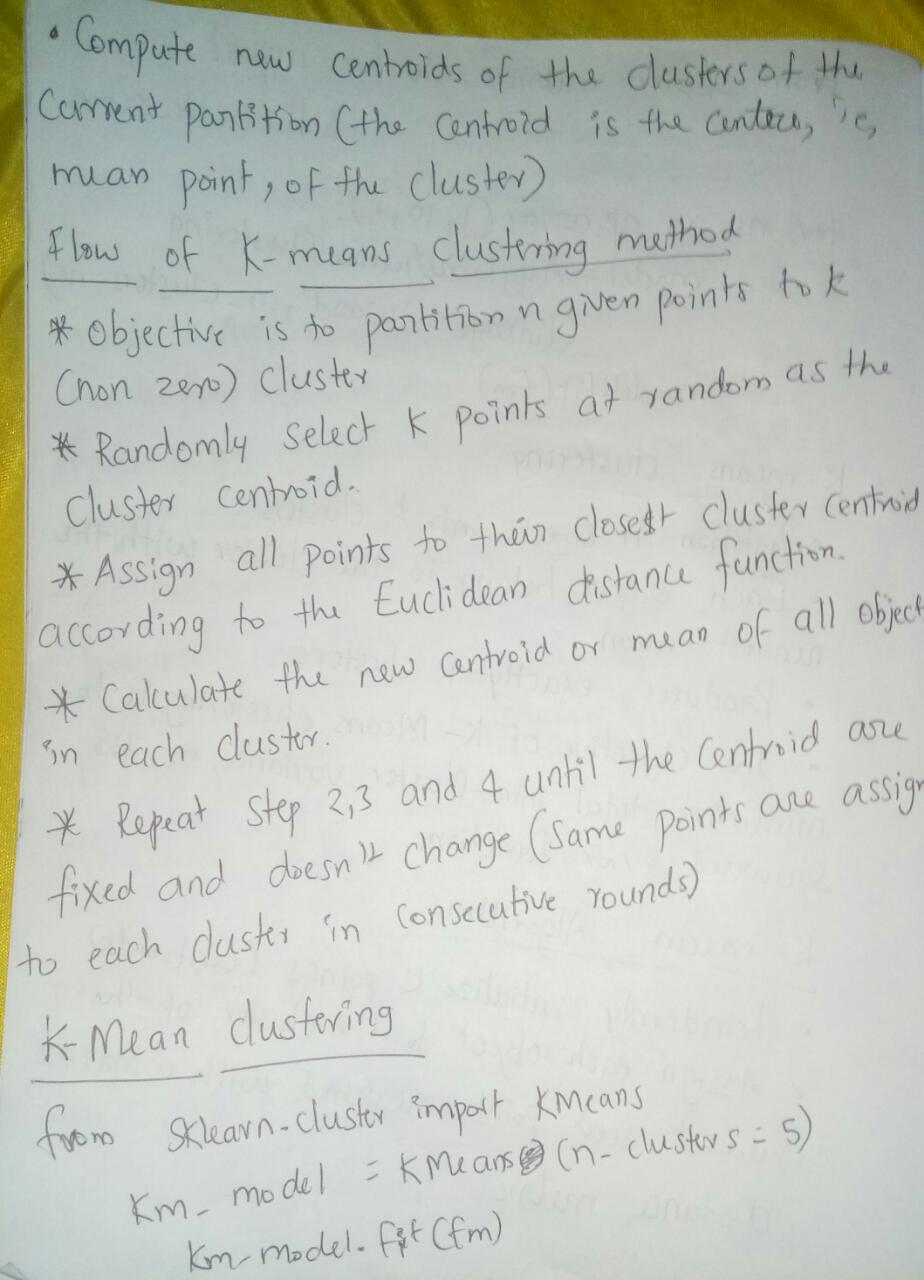 • Compute new centroids of the clusters of the
Current partition (the centroid is the center, ie,
mean point, of the cluster)
Flow of K-means clustering method
* Objective is to partition n given points to k
(non zero) cluster
* Randomly select K points at random as the
cluster centroid.
* Assign all points to their closest cluster centroid
according to the Euclidean distance function.
* Calculate the new centroid or mean of all object
in each cluster.
* Repeat step 2,3 and 4 until the centroid are
fixed and doesn't change (same points are assign
to each cluster in consecutive rounds)
K-Mean clustering
from sklearn.cluster import KMeans
Km_model = KMeans (n_clusters = 5)
Km_model.fit (fm)